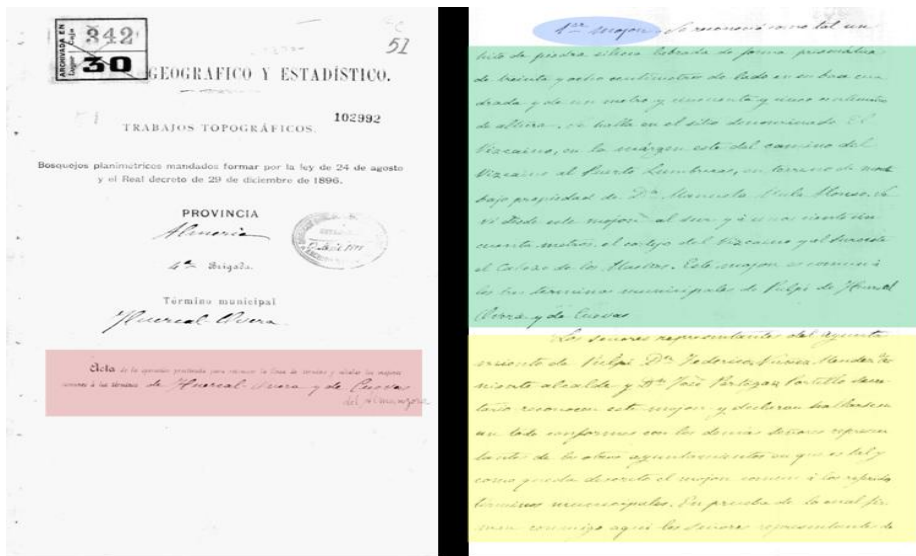 ARCHIVADA EN
Caja 342
Lugar 30
51
GEOGRAFICO Y ESTADÍSTICO.
102992
TRABAJOS TOPOGRÁFICOS.
Bosquejos planimétricos mandados formar por la ley de 24 de agosto
y el Real decreto de 29 de diciembre de 1896.
PROVINCIA
Almería
4ª Brigada.
Término municipal
Huercal Overa
Acta de la operación practicada para reconocer la línea de término y señalar los mojones
comunes á los términos de Huercal Overa y de Cuevas
del Almanzora
1er mojon. Se reconoció como tal un
hito de piedra silicea labrada de forma prismática
de treinta y ocho centímetros de lado en su base cua
drada y de un metro y cincuenta y cinco centímetros
de altura, se halla en el sitio denominado El
Vizcaino, en la márgen este del camino del
Vizcaino al Puerto Lumbreras, en terreno de monte
bajo propiedad de Dª Manuela Mula Alonso. Se
vé desde este mojon al sur y á unos ciento cin
cuenta metros, el cortijo del Vizcaino y al suroeste
el Cabezo de los Maestros. Este mojon es comun á
los tres términos municipales de Pulpi de Huercal
Overa y de Cuevas
Los señores representantes del ayunta
miento de Pulpi Dn Federico Mendez te
niente alcalde y Dn José Portillo secre
tario reconocen este mojon y declaran hallarse
en todo conformes con los demás señores represen
tantes de los otros ayuntamientos en que es tal y
como queda descrito el mojon comun á los referidos
términos municipales. En prueba de lo cual fir
man conmigo aqui los señores representantes de